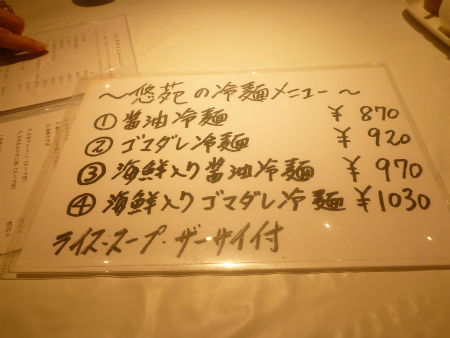 ～悠苑の冷麺メニュー～
① 醤油冷麺 ￥870
② ゴマダレ冷麺 ￥920
③ 海鮮入り醤油冷麺 ￥970
④ 海鮮入りゴマダレ冷麺 ￥1030
ライス・スープ・ザーサイ付